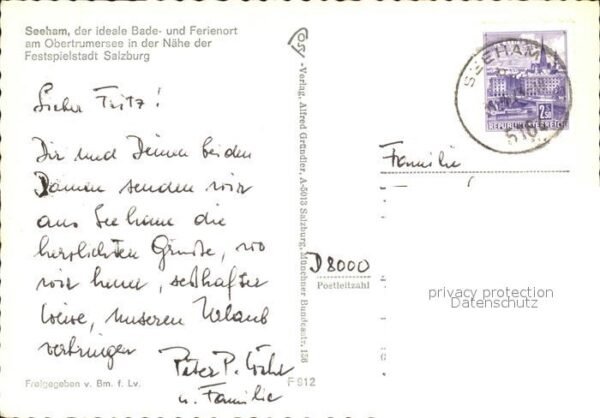 Seeham, der ideale Bade- und Ferienort
am Obertrumersee in der Nähe der
Festspielstadt Salzburg
Lieber Fritz!
Dir und Deinen beiden
Damen senden wir
aus Seeham die
herzlichsten Grüße, wo
wir heuer, seßhafter
Weise, unseren Urlaub
verbringen
Peter P.
u. Familie
Freigegeben v. Bm. f. Lv.
F 912
Verlag Alfred Gründler, A-5013 Salzburg, Münchner Bundesstr. 156
SEEHAM
2.50
REPUBLIK ÖSTERREICH
Familie
D 8000
Postleitzahl
privacy protection
Datenschutz